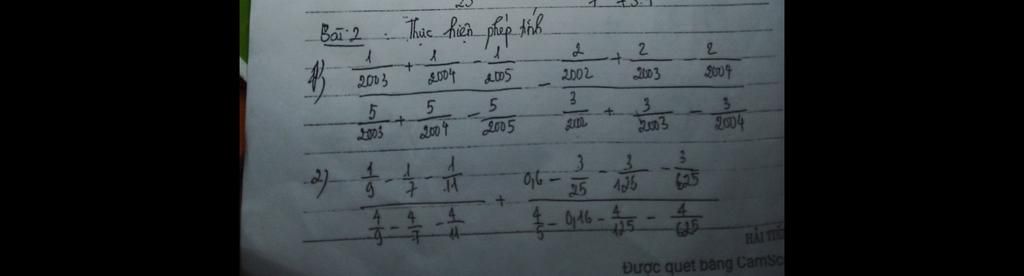 Bài 2 : Thực hiện phép tính
1) \frac{\frac{1}{2003} + \frac{1}{2004} - \frac{1}{2005}}{\frac{5}{2003} + \frac{5}{2004} - \frac{5}{2005}} - \frac{\frac{2}{2002} + \frac{2}{2003} - \frac{2}{2004}}{\frac{3}{2002} + \frac{3}{2003} - \frac{3}{2004}}
2) \frac{\frac{1}{9} - \frac{1}{7} - \frac{1}{11}}{\frac{4}{9} - \frac{4}{7} - \frac{4}{11}} + \frac{0,6 - \frac{3}{25} - \frac{3}{125} - \frac{3}{625}}{\frac{4}{5} - 0,16 - \frac{4}{125} - \frac{4}{625}}
HẢI TIẾ
Được quét bằng CamSc